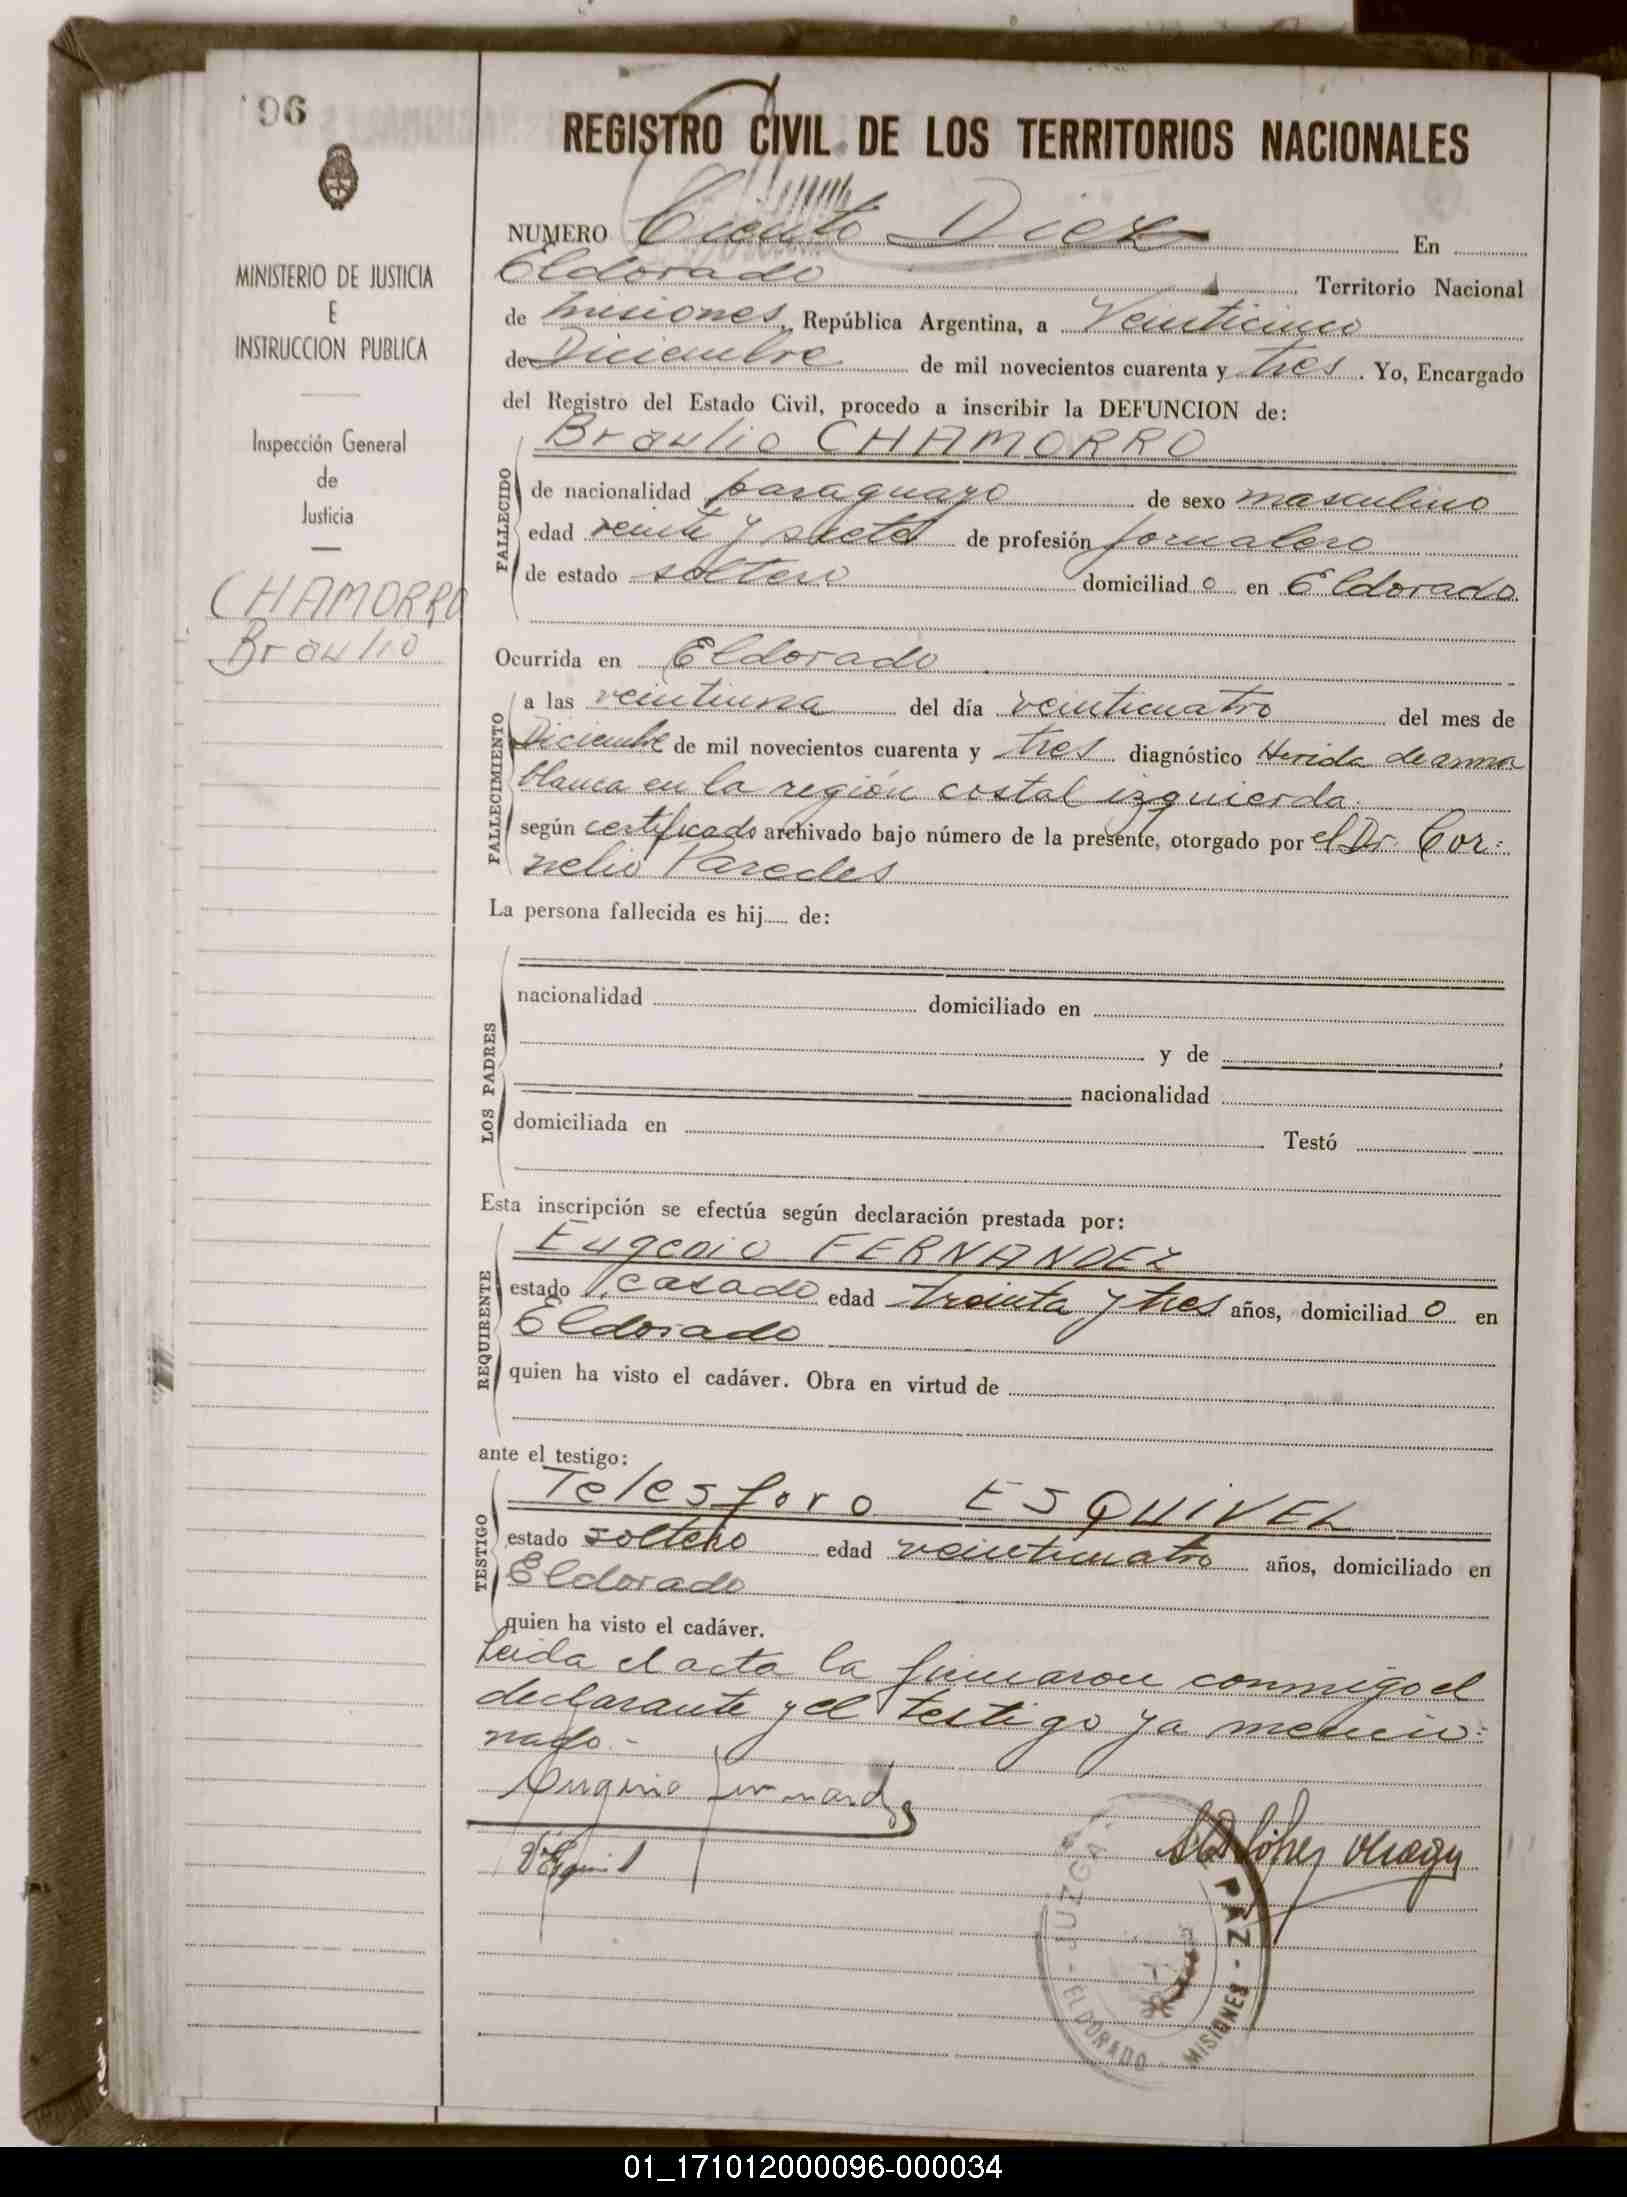 96
MINISTERIO DE JUSTICIA
E
INSTRUCCION PUBLICA
Inspección General
de
Justicia
CHAMORRO
Braulio
REGISTRO CIVIL DE LOS TERRITORIOS NACIONALES
NUMERO Ciento Diez En
Eldorado Territorio Nacional
de Misiones, República Argentina, a Veinticinco
de Diciembre de mil novecientos cuarenta y tres. Yo, Encargado
del Registro del Estado Civil, procedo a inscribir la DEFUNCION de:
Braulio CHAMORRO
FALLECIDO
de nacionalidad paraguayo de sexo masculino
edad veinte y siete de profesión jornalero
de estado soltero domiciliado en Eldorado
Ocurrida en Eldorado
FALLECIMIENTO
a las veintiuna del día veinticuatro del mes de
Diciembre de mil novecientos cuarenta y tres diagnóstico Herida de arma
blanca en la región costal izquierda.
según certificado archivado bajo número de la presente, otorgado por el Dr. Cor=
nelio Paredes
La persona fallecida es hij..... de:
LOS PADRES
nacionalidad domiciliado en
y de
nacionalidad
domiciliada en Testó
Esta inscripción se efectúa según declaración prestada por:
Eugenio FERNANDEZ
REQUIRENTE
estado casado edad treinta y tres años, domiciliado en
Eldorado
quien ha visto el cadáver. Obra en virtud de
ante el testigo:
Telesforo ESQUIVEL
TESTIGO
estado soltero edad veinticuatro años, domiciliado en
Eldorado
quien ha visto el cadáver.
Leida el acta la firmaron conmigo el
declarante y el testigo ya mencio=
nado.-
JUZGA PAZ
ELDORADO - MISIONES
01_171012000096-000034